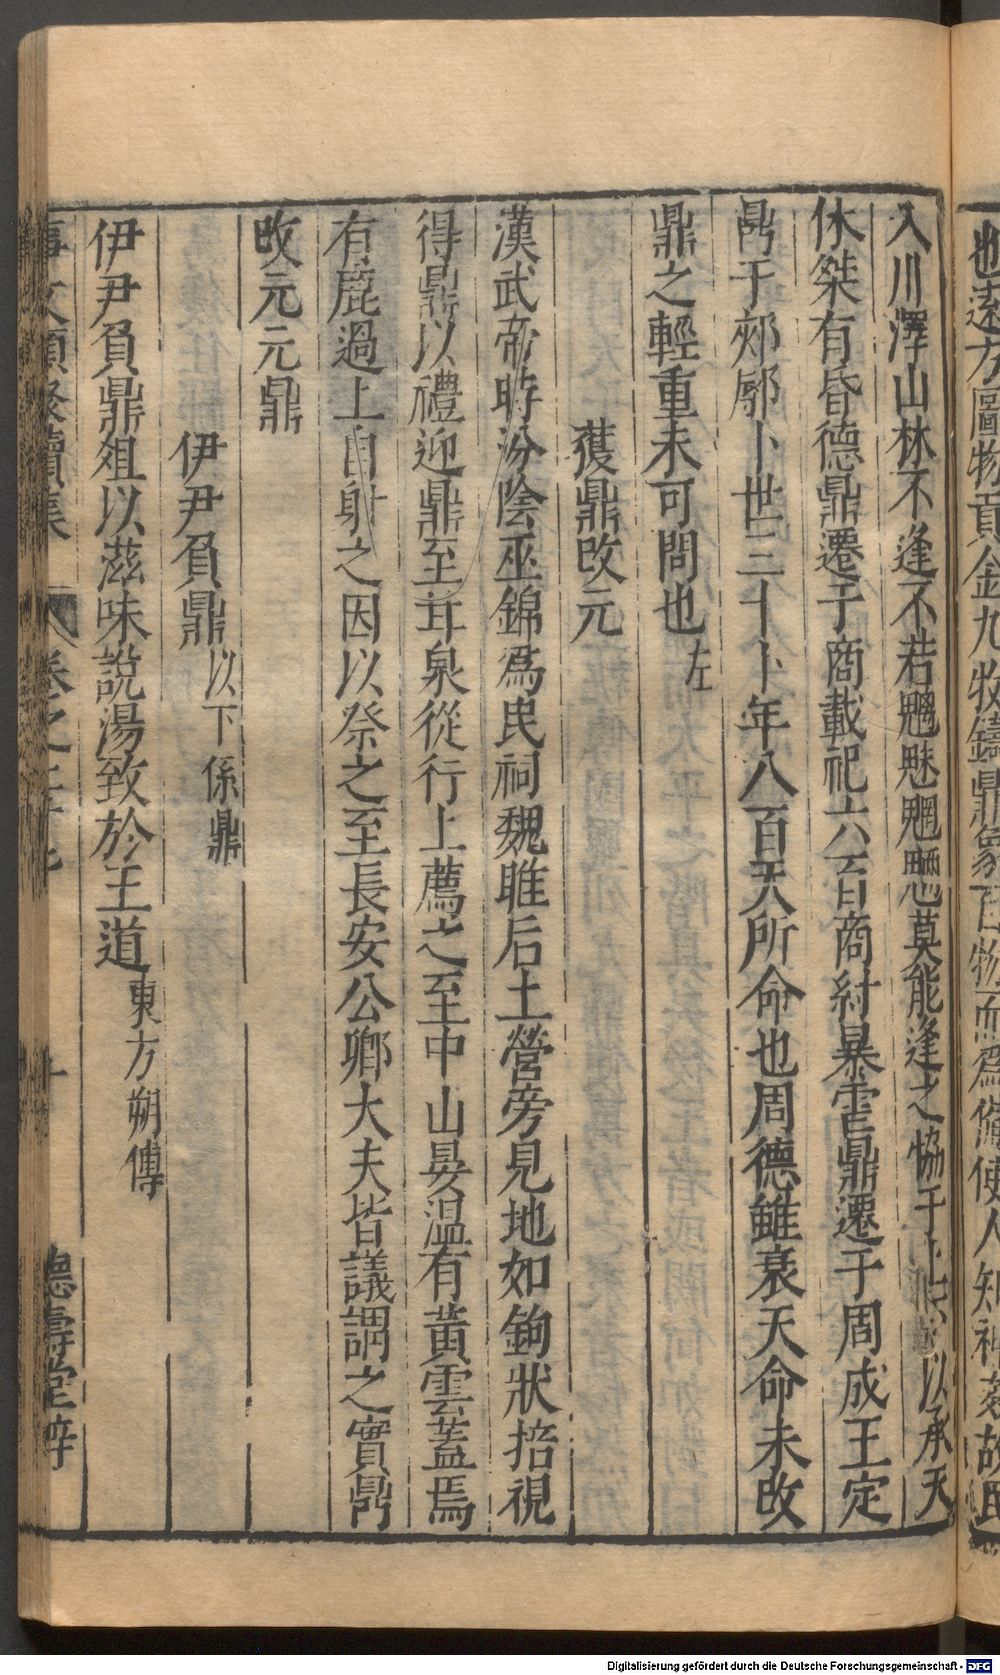 也遠方圖物貢金九牧鑄鼎象百物而爲備使人知神姦故民
入川澤山林不逢不若魑魅魍魎莫能逢之協于上下以承天
休桀有昏德鼎遷于商載祀六百商紂暴虐鼎遷于周成王定
鼎于郟鄏卜世三十卜年八百天所命也周德雖衰天命未改
鼎之輕重未可問也左
獲鼎改元
漢武帝時汾陰巫錦爲民祠魏雎后土營旁見地如鉤狀掊視
得鼎以禮迎鼎至甘泉從行上薦之至中山晏温有黃雲蓋焉
有鹿過上自射之因以祭之至長安公卿大夫皆議謂之寶鼎
改元元鼎
伊尹負鼎以下係鼎
伊尹負鼎俎以滋味說湯致於王道東方朔傳
事文類聚續集 卷之二十七 十 德壽堂梓
Digitalisierung gefördert durch die Deutsche Forschungsgemeinschaft - DFG